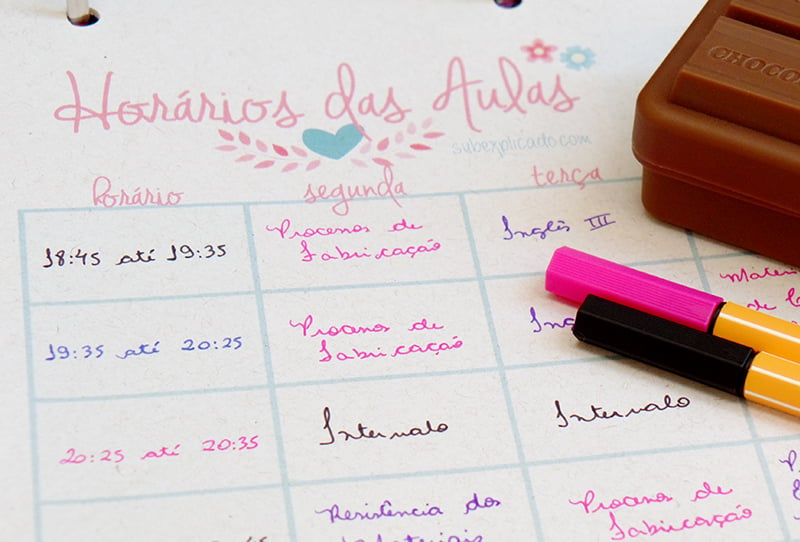 Horários das Aulas
subexplicado.com
horário segunda terça
18:45 até 19:35
Processos de
Fabricação
Inglês III
19:35 até 20:25
Processos de
Fabricação
de
20:25 até 20:35
Intervalo
Intervalo
Resistência dos
Materiais
Processos de
Fabricação